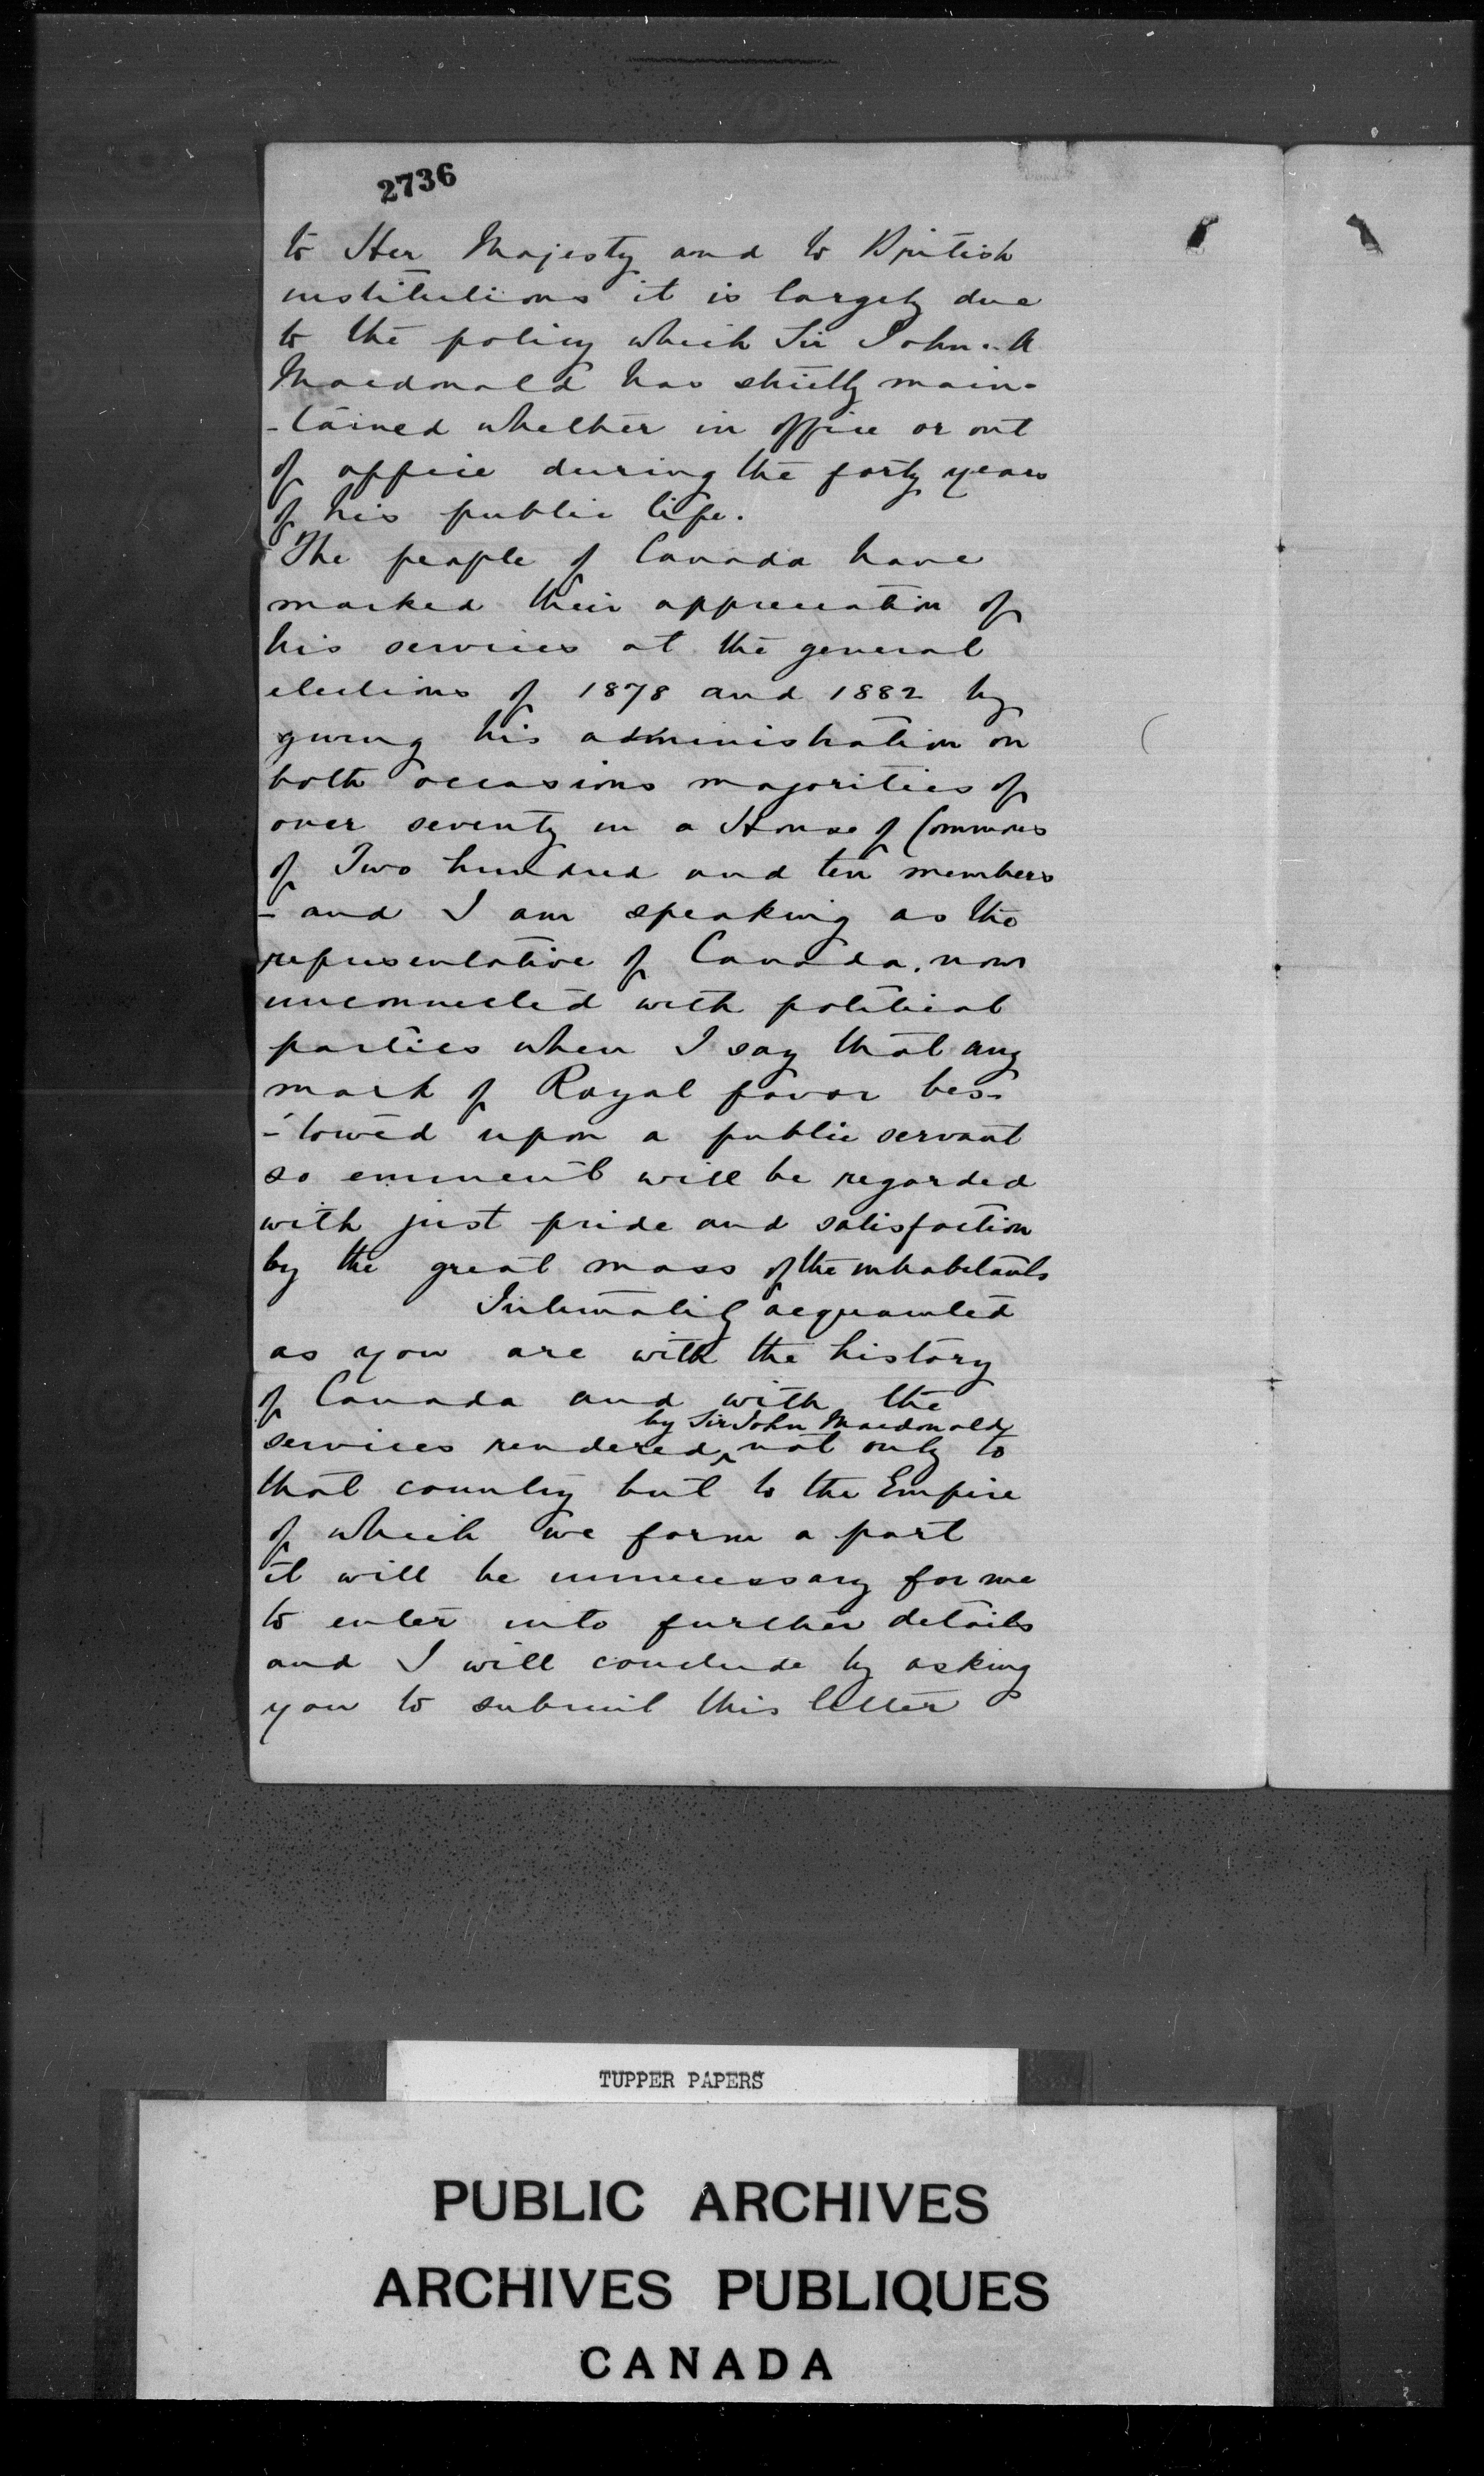 2736
to Her Majesty and to British
institutions it is largely due
to the policy which Sir John. A
Macdonald has strictly main-
-tained whether in office or out
of office during the forty years
of his public life.
The people of Canada have
marked their appreciation of
his services at the general
elections of 1878 and 1882 by
giving his administration on
both occasions majorities of
over seventy in a House of Commons
of Two hundred and ten members
- and I am speaking as the
representative of Canada, now
unconnected with political
parties when I say that any
mark of Royal favor bes-
-towed upon a public servant
so eminent will be regarded
with just pride and satisfaction
by the great mass of the inhabitants
Intimately acquainted
as you are with the history
of Canada and with the
by Sir John Macdonald
services rendered ^ not only to
that country but to the Empire
of which we form a part
it will be unnecessary for me
to enter into further details
and I will conclude by asking
you to submit this letter
TUPPER PAPERS
PUBLIC ARCHIVES
ARCHIVES PUBLIQUES
CANADA